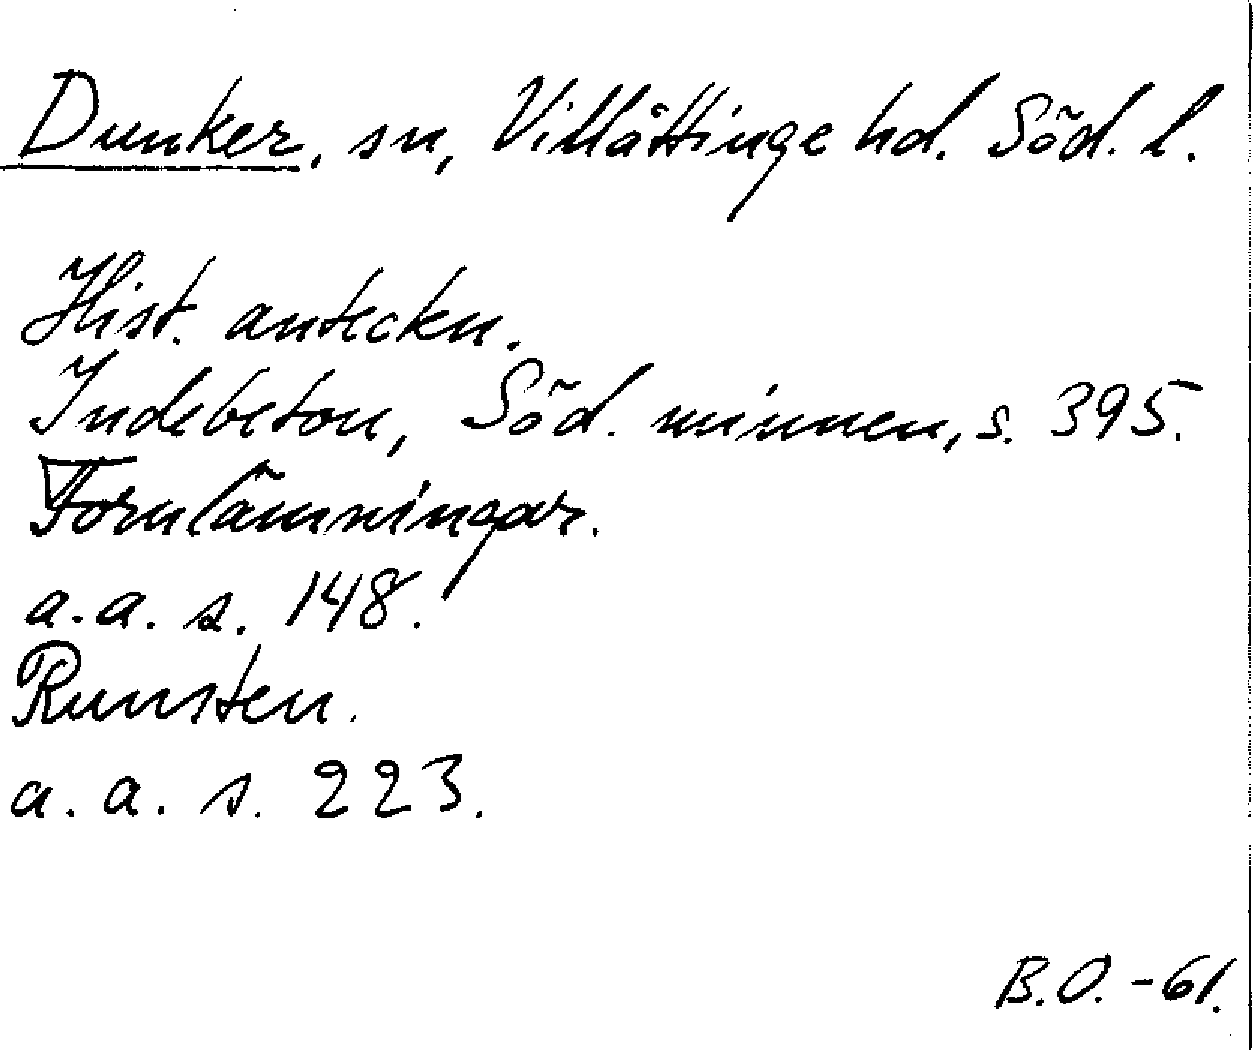 Dunker, sn, Villåttinge hd. Söd. l.
Hist. anteckn.
Indebetou, Söd. minnen, s. 395.
Fornlämningar.
a.a. s. 148.
Runsten.
a. a. s. 223.
B.O. -61.